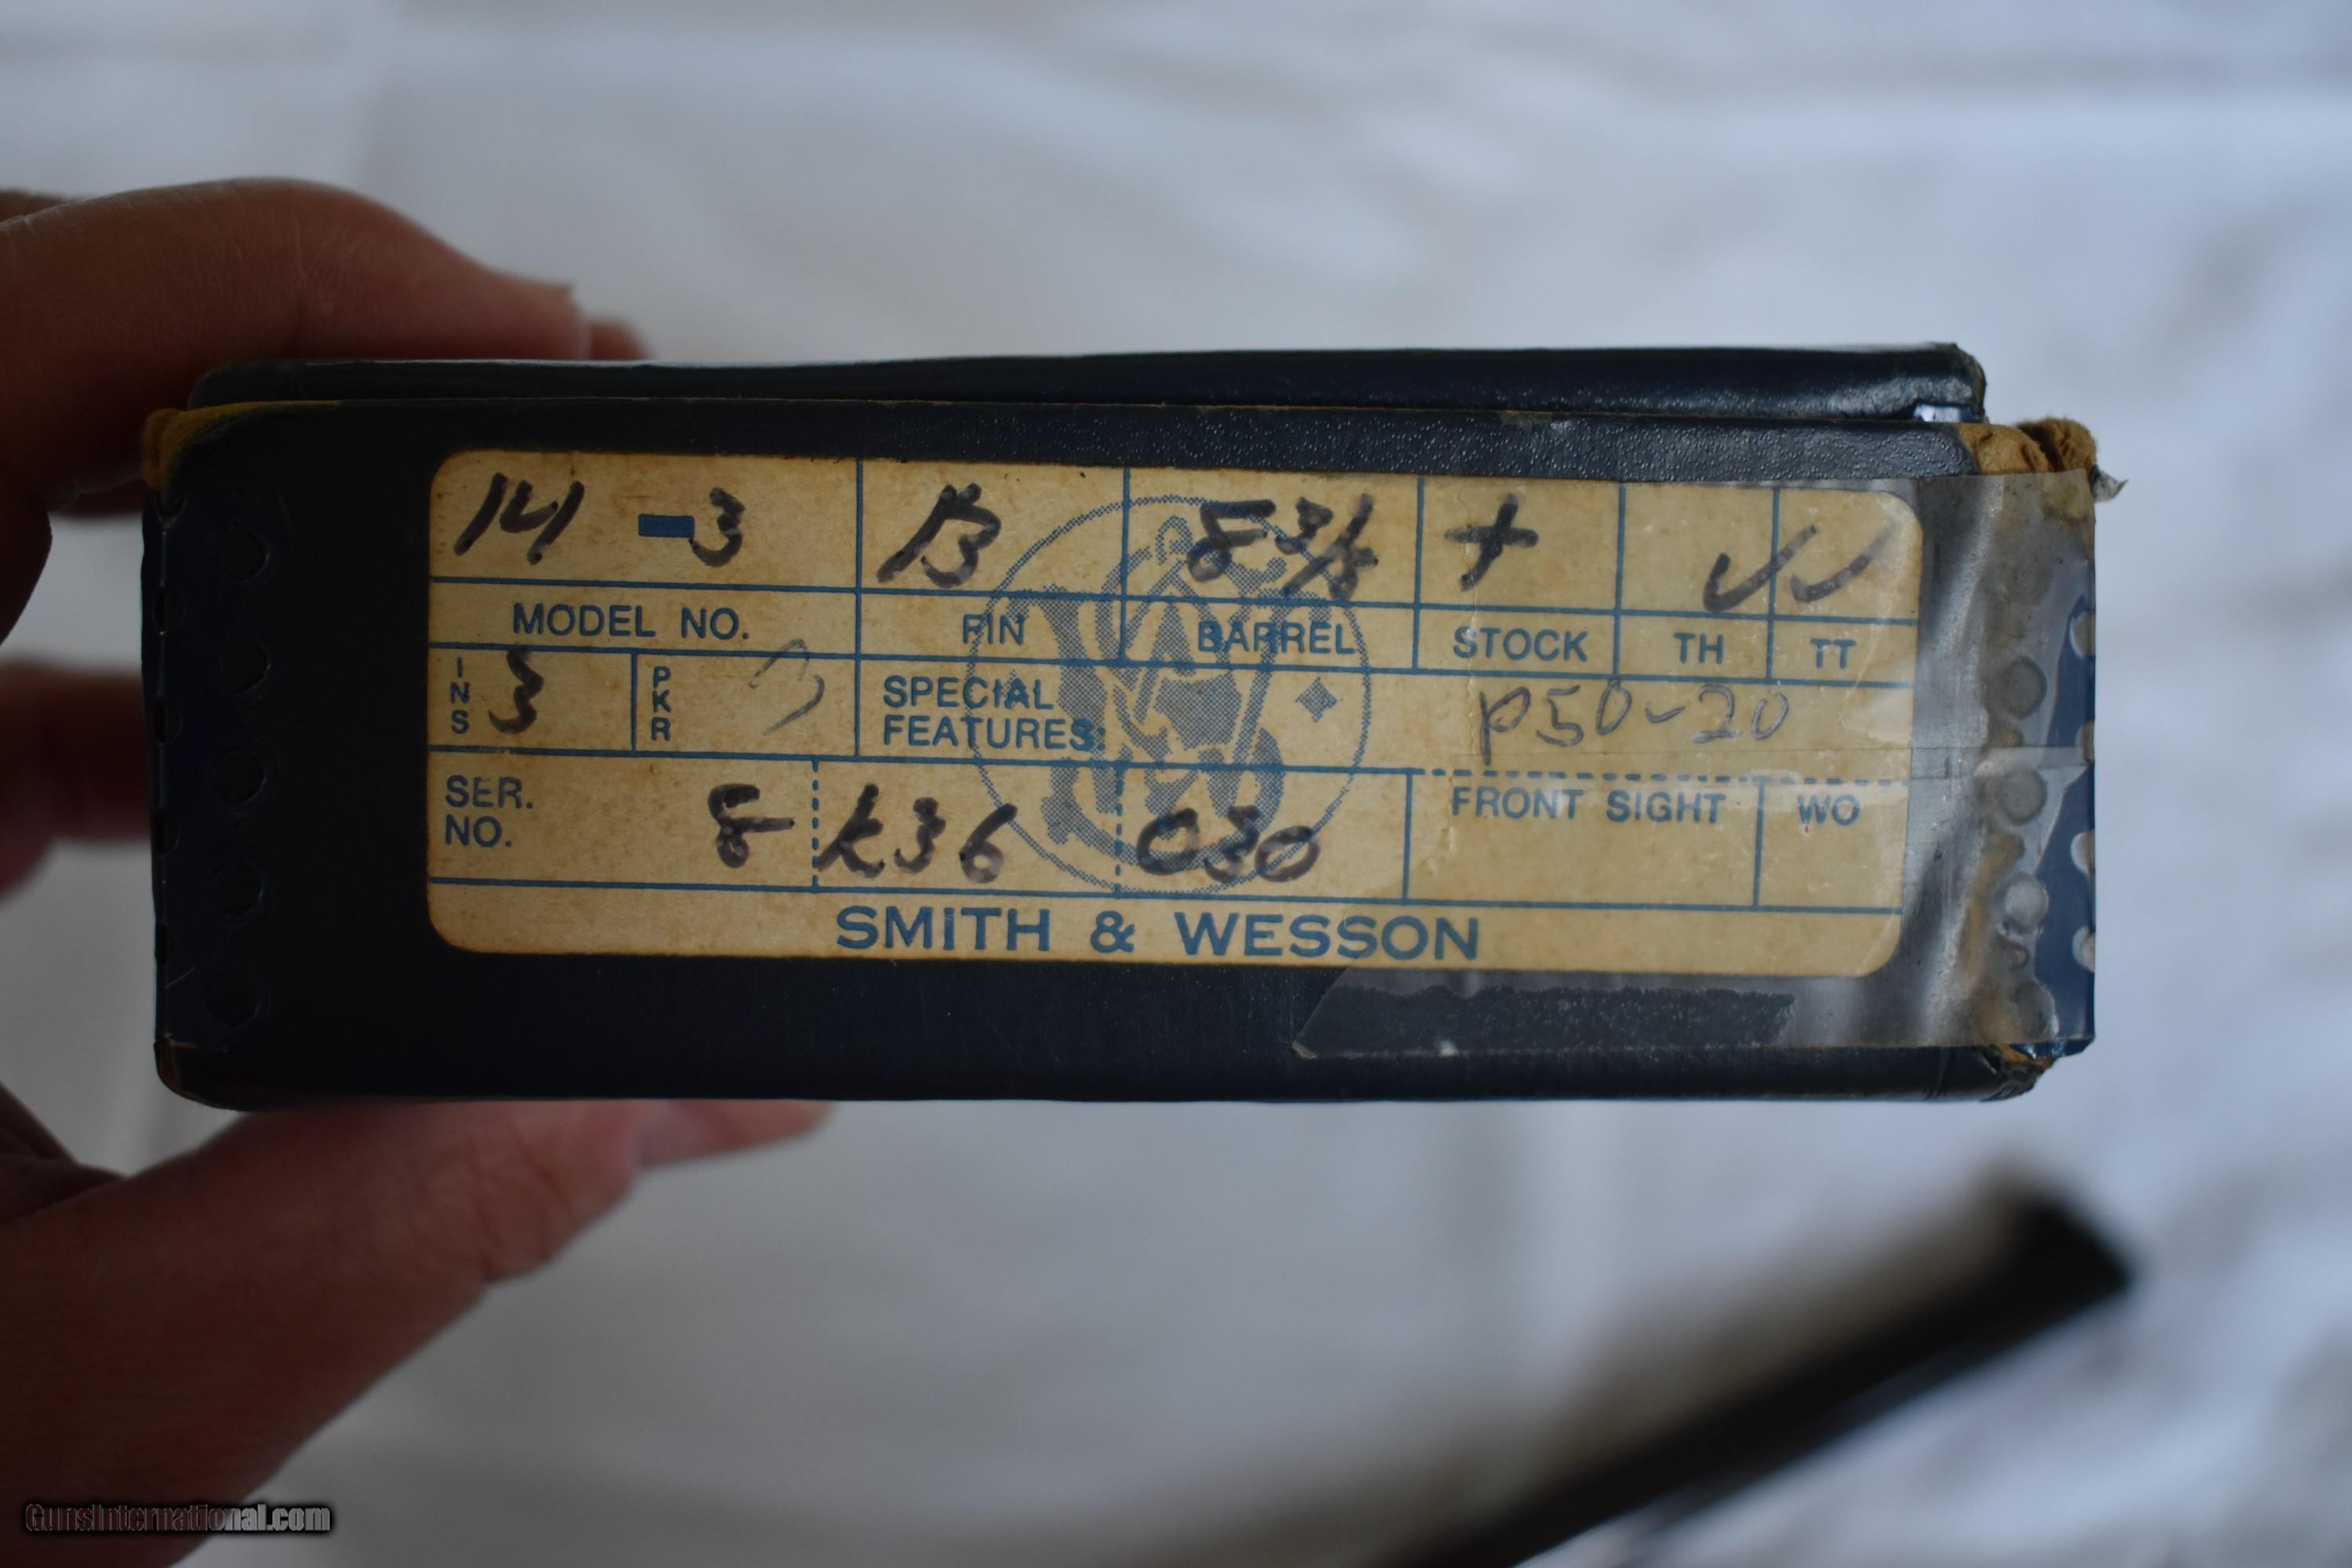 14 -3 B 8 3/8 + ✓ ✓
MODEL NO. FIN BARREL STOCK TH TT
INS 3 PKR SPECIAL FEATURES: P50-20
SER. NO. 8- K36 030 FRONT SIGHT WO
SMITH & WESSON
GunsInternational.com